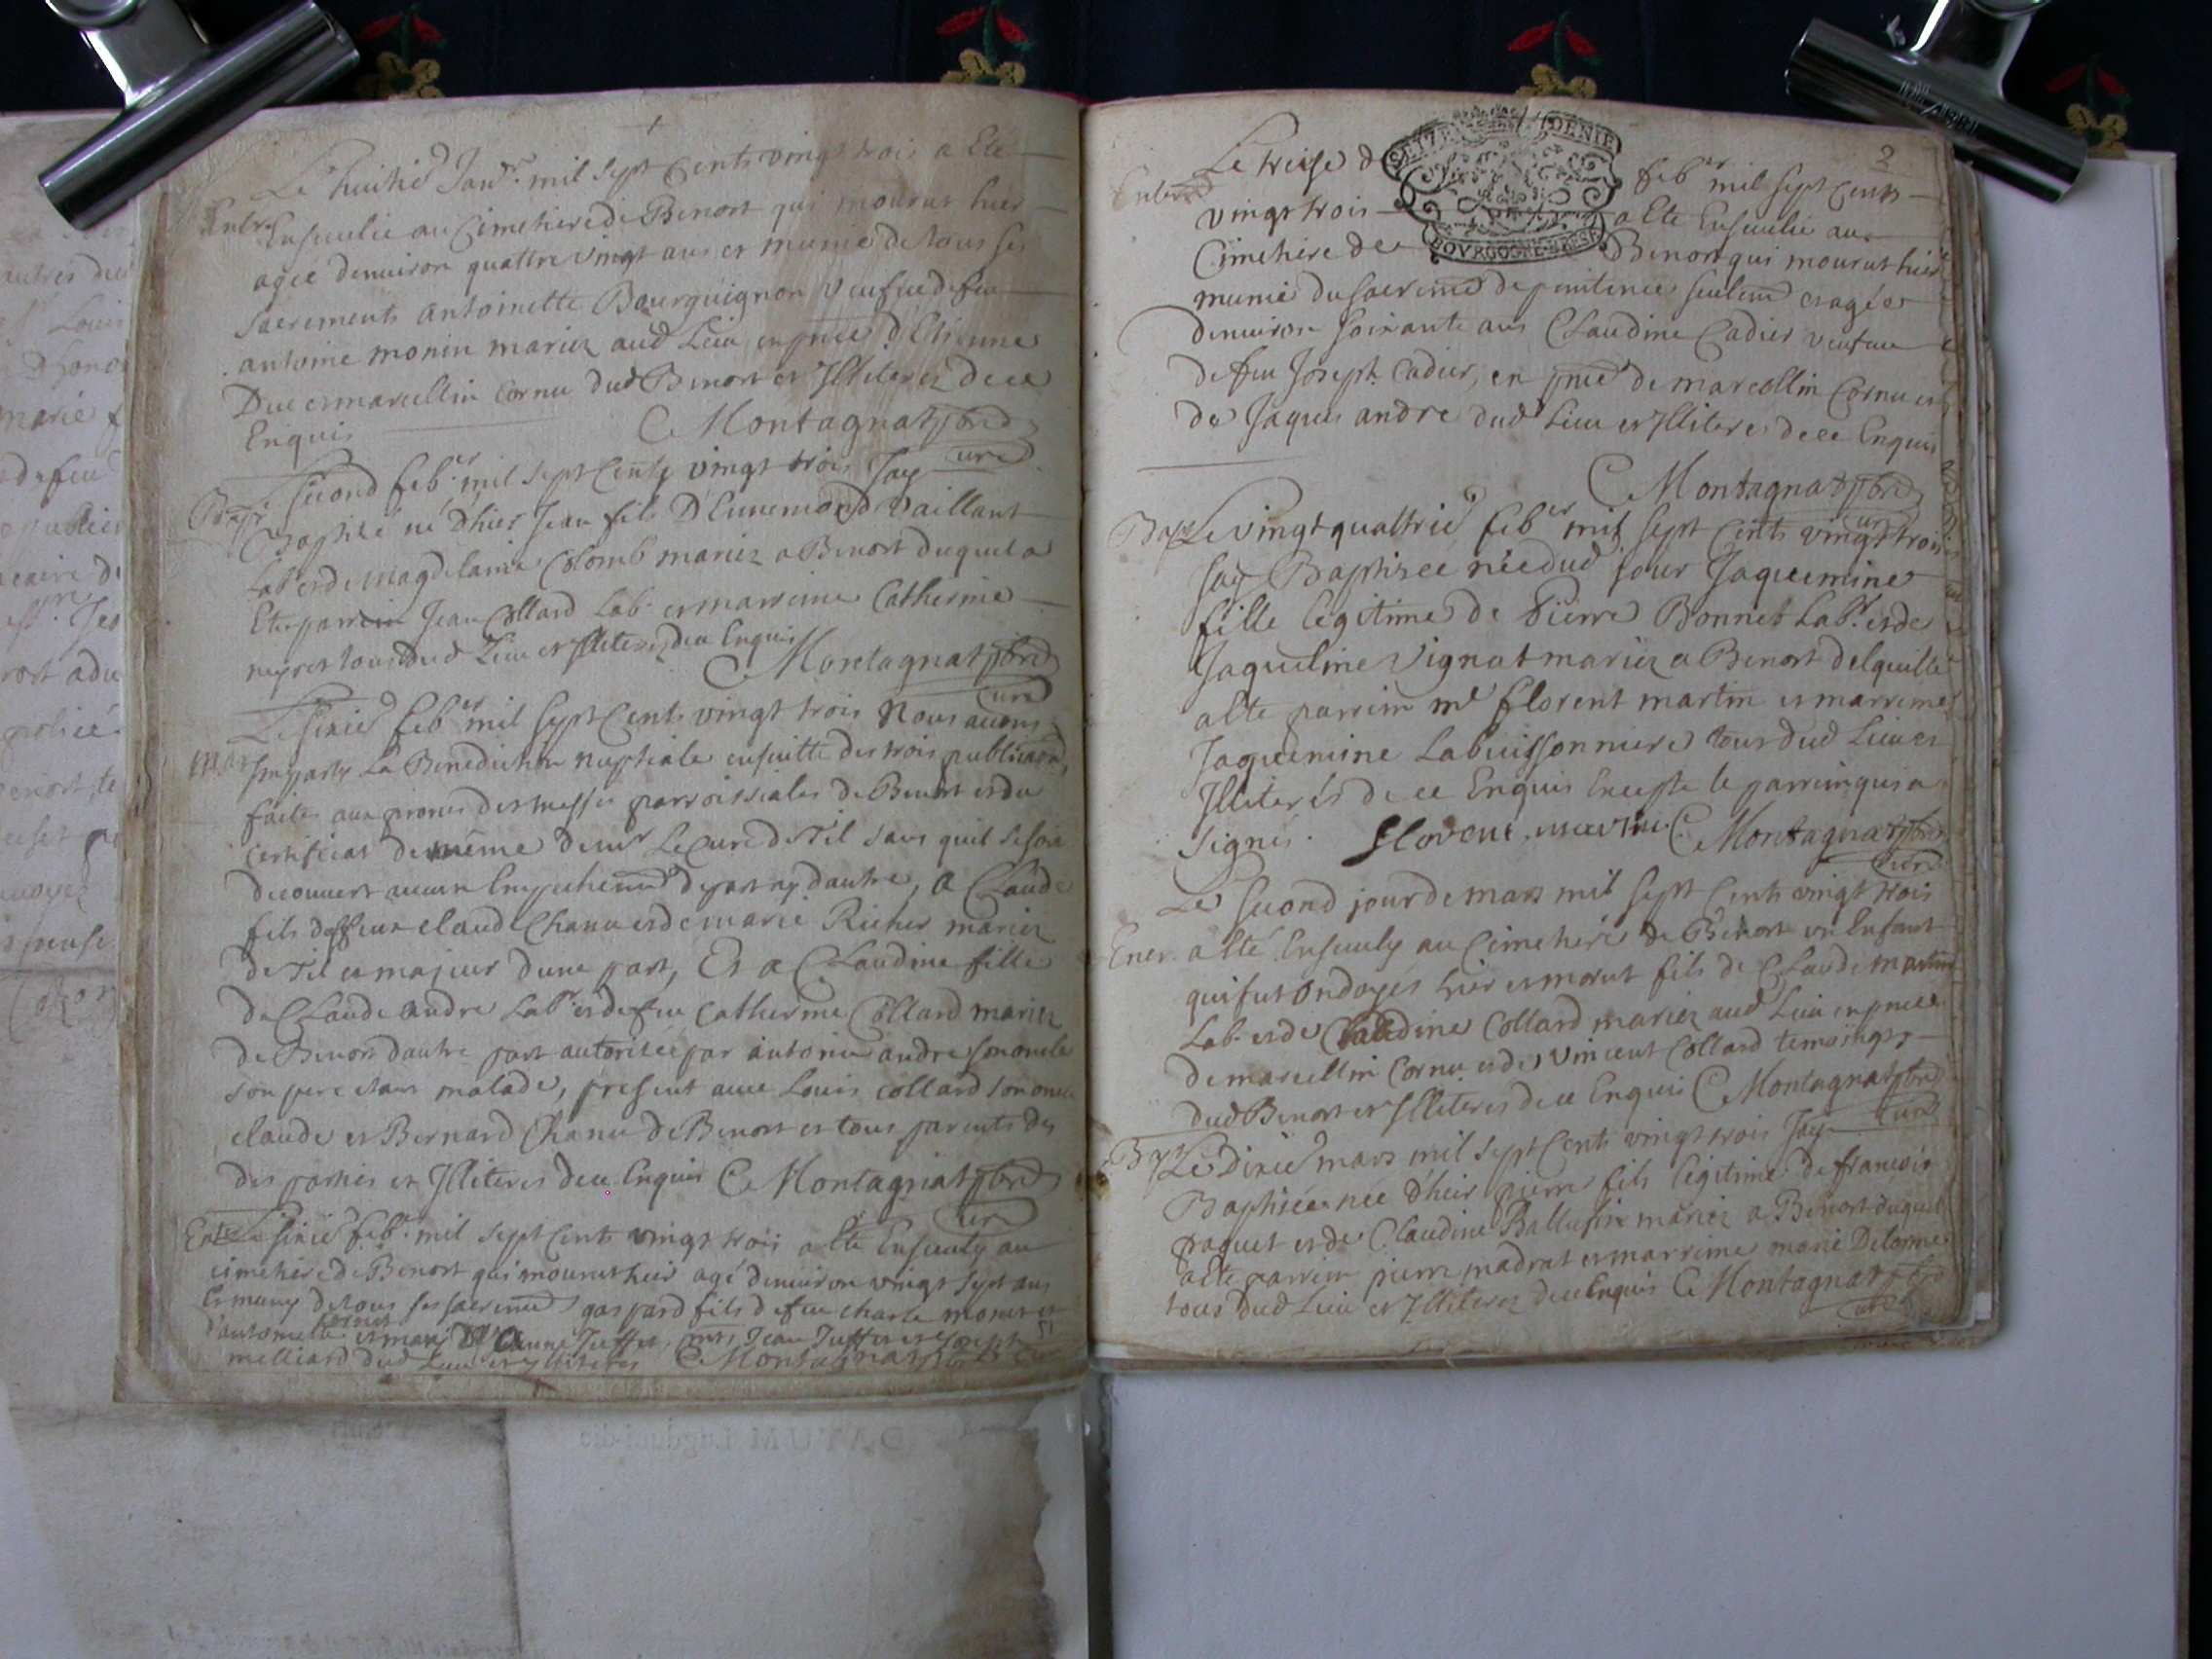 1
Le huitie Janr. mil sept cents vingt trois a Ete
Enter. Ensevelie au Cimetiere de Benost qui mourut hier
agée denuiron quattre vingt ans et munie de tous ses
sacrements antoinette Bourguignon veufue de feu
antoine monin mariez aud Lieu en pnce d'Etienne
Duc et marcellin Cornu dud Benost et Illiterez de ce
Enquis C Montagnat pbre
curé
Le second febr. mil sept Cents vingt trois Jay
Bap. Baptisé né d'hier Jean fils D'Ennemond Vaillant
Lab. et de magdelaine Colomb mariez a Benost duquel a
Ete parrein Jean Collard Lab. et marreine Catherine
tous dud Lieu et Illiterez de ce Enquis C Montagnat pbre
curé
Le sixie febr mil sept Cents vingt trois Nous auons
Mar Imparty La Benediction nuptiale ensuitte des trois publicaons
faites aux prones des messes parroissiales de Benost et du
certificat de même de mr Le Curé de Til sans quil se soit
decouuert aucun Empechemt de part ny dautre, a Claude
fils deffeux claude Chanu et de marie Richer mariez
de Til et majeur d'une part, Et a Claudine fille
de Claude andre Labr et de feue Catherine Collard mariez
de Benost dautre part autorisée par antoine andre son oncle
son pere etant malade, present auec Louis Collard son oncle
claude et Bernard Chanu de Benost et tous parents des
des parties et Illiteres de ce Enquis C Montagnat pbre
curé
Enter Le sixie febr. mil sept Cents vingt trois a été Enseuely au
cimetiere de Benost qui mourut hier agé denuiron vingt sept ans
Et muny de tous ses sacremts gaspard fils de feu charle monet et
d'antoinette Cornet et mari d'anne Juffet, Jean Juffet et Joseph
melliard dud Lieu et Illiteres C Montagnat pbre curé
2
SEIZE DENIE
BOVRGOGNE BRESSE
Le treise de febr mil sept Cents
Enter vingt trois a Ete Enseuelie au
Cimetiere de Benost qui mourut hier
munie du sacremt de penitence seulemt et agée
denuiron soixante ans Claudine Cadier veufue
de feu Joseph Cadier, en pnce de marcellin Cornu et
de Jaques andre dud Lieu et Illiteres de ce Enquis
C Montagnat pbre
curé
Bap. Le vingt quattrie febr mil sept Cents vingt trois
Jay Baptisée née dud jour Jaquemine
fille legitime de Pierre Bonnet Labr. et de
Jaqueline Vignat mariez a Benost delquelle
a Ete parrein mr florent martin et marreine
Jaquemine Labuissonniere tous dud Lieu et
Illiterés de ce Enquis Excepte le parrein qui a
signé. florent martin C Montagnat pbre
curé
Le second jour de mars mil sept Cents vingt trois
Enter. a Eté Enseuely au Cimetiere de Benost un Enfant
qui fut ondoyés hier et morut fils de Claude martin
Lab. et de Claudine Collard mariez aud Lieu en pnce
de marcellin Cornu et de vincent Collard temoings
dud Benost et Illiteres de ce Enquis C Montagnat pbre
curé
Bap. Le dixie mars mil sept Cents vingt trois Jay
Baptisée née d'hier pierre fils legitime de françois
paquet et de Claudine Ballufin mariez a Benost duquel
a Ete parrein pierre madrat et marreine marie Delorme
tous dud Lieu et Illiterez de ce Enquis C Montagnat pbre
curé